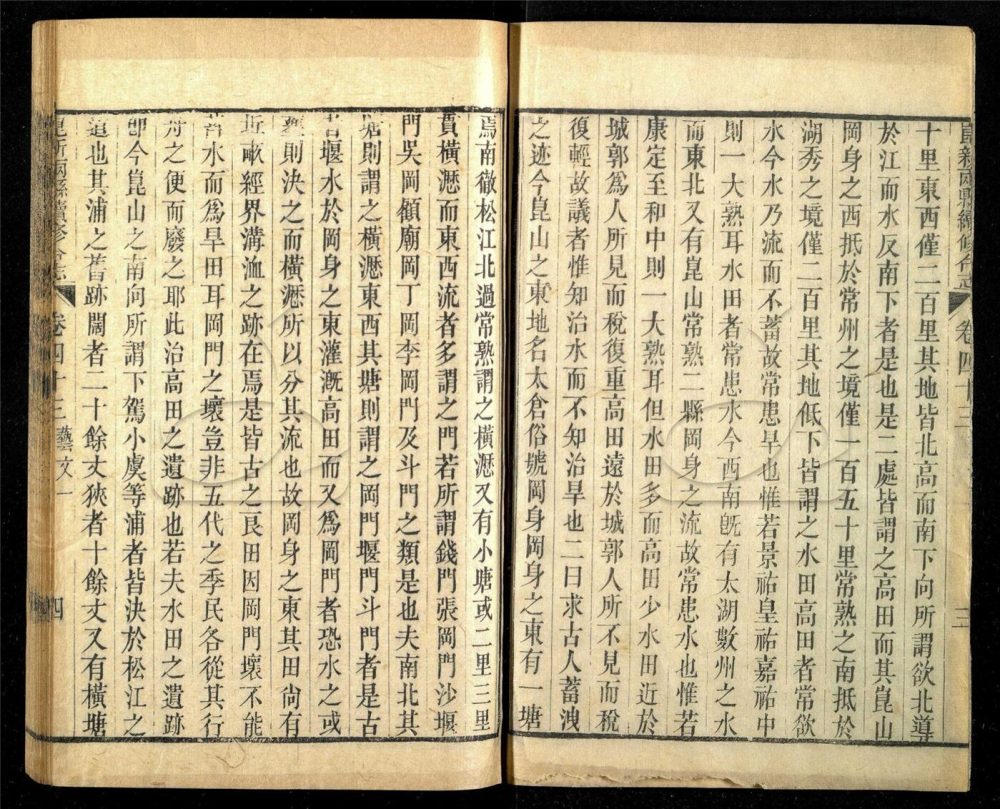 崑新兩縣續修合志 卷四十三 三
十里東西僅二百里其地皆北高而南下向所謂欲北導
於江而水反南下者是也是二處皆謂之高田而其崑山
岡身之西抵於常州之境僅一百五十里常熟之南抵於
湖秀之境僅二百里其地低下皆謂之水田高田者常欲
水今水乃流而不蓄故常患旱也惟若景祐皇祐嘉祐中
則一大熟耳水田者常患水今西南既有太湖數州之水
而東北又有崑山常熟二縣岡身之流故常患水也惟若
康定至和中則一大熟耳但水田多而高田少水田近於
城郭爲人所見而稅復重高田遠於城郭人所不見而稅
復輕故議者惟知治水而不知治旱也二曰求古人蓄洩
之迹今崑山之東地名太倉俗號岡身岡身之東有一塘
焉南徹松江北過常熟謂之橫瀝又有小塘或二里三里
貫橫瀝而東西流者多謂之門若所謂錢門張岡門沙堰
門吳岡顧廟岡丁岡李岡門及斗門之類是也夫南北其
塘則謂之橫瀝東西其塘則謂之岡門堰門斗門者是古
者堰水於岡身之東灌漑高田而又爲岡門者恐水之或
壅則決之而橫瀝所以分其流也故岡身之東其田尙有
丘畝經界溝洫之跡在焉是皆古之良田因岡門壞不能
蓄水而爲旱田耳岡門之壞豈非五代之季民各從其行
舟之便而廢之耶此治高田之遺跡也若夫水田之遺跡
卽今崑山之南向所謂下駕小虞等浦者皆決於松江之
道也其浦之舊跡闊者二十餘丈狹者十餘丈又有橫塘
崑新兩縣續修合志 卷四十三 藝文一 四